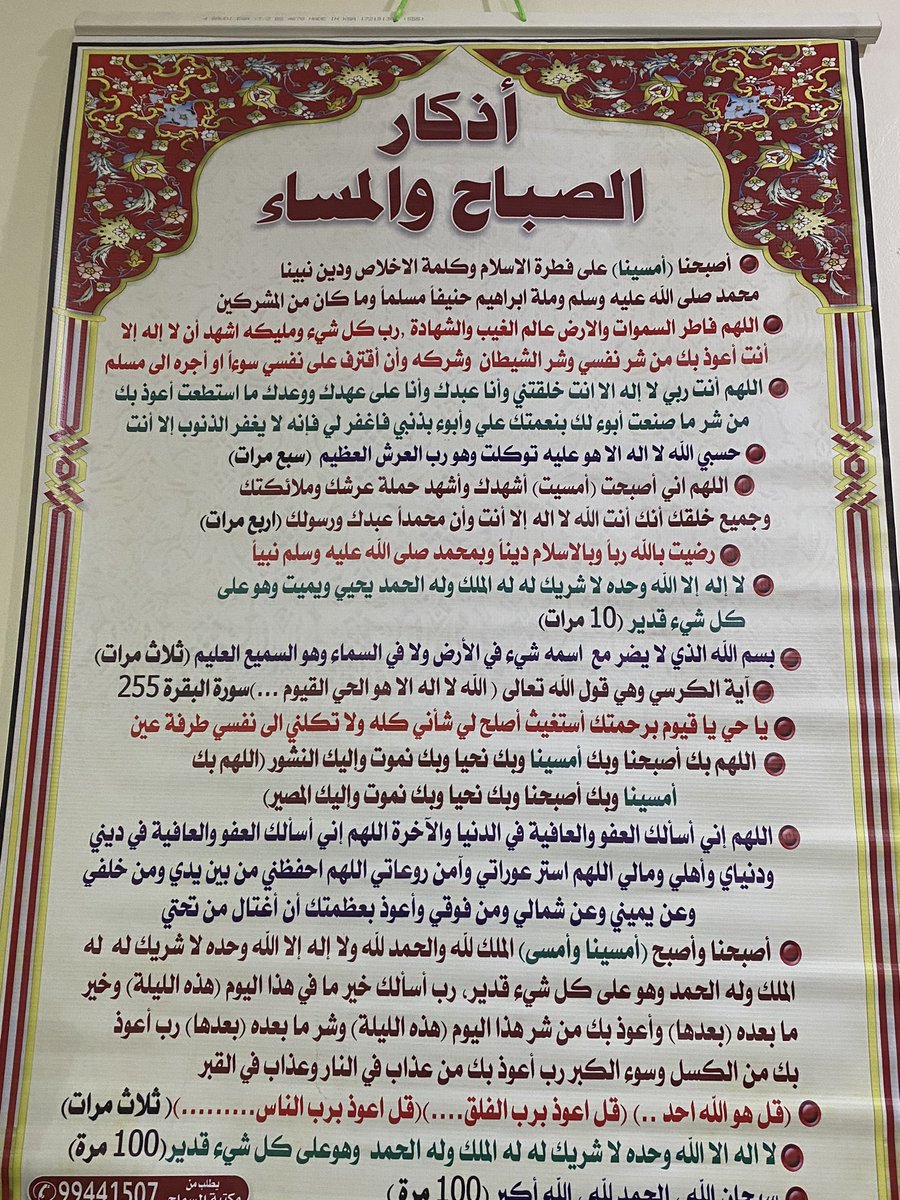 أذكار
الصباح والمساء
أصبحنا (أمسينا) على فطرة الاسلام وكلمة الاخلاص ودين نبينا
محمد صلى الله عليه وسلم وملة ابراهيم حنيفاً مسلماً وما كان من المشركين
اللهم فاطر السموات والارض عالم الغيب والشهادة ,رب كل شيء ومليكه اشهد أن لا إله إلا
أنت أعوذ بك من شر نفسي وشر الشيطان وشركه وأن أقترف على نفسي سوءاً او أجره الى مسلم
اللهم أنت ربي لا إله الا انت خلقتني وأنا عبدك وأنا على عهدك ووعدك ما استطعت أعوذ بك
من شر ما صنعت أبوء لك بنعمتك علي وأبوء بذنبي فاغفر لي فإنه لا يغفر الذنوب إلا أنت
حسبي الله لا اله الا هو عليه توكلت وهو رب العرش العظيم (سبع مرات)
اللهم اني أصبحت (أمسيت) أشهدك وأشهد حملة عرشك وملائكتك
وجميع خلقك أنك أنت الله لا اله إلا أنت وأن محمداً عبدك ورسولك (اربع مرات)
رضيت بالله رباً وبالاسلام ديناً وبمحمد صلى الله عليه وسلم نبياً
لا إله إلا الله وحده لا شريك له له الملك وله الحمد يحيي ويميت وهو على
كل شيء قدير (10 مرات)
بسم الله الذي لا يضر مع اسمه شيء في الأرض ولا في السماء وهو السميع العليم (ثلاث مرات)
آية الكرسي وهي قول الله تعالى ( الله لا اله الا هو الحي القيوم ...)سورة البقرة 255
يا حي يا قيوم برحمتك أستغيث أصلح لي شأني كله ولا تكلني الى نفسي طرفة عين
اللهم بك أصبحنا وبك أمسينا وبك نحيا وبك نموت وإليك النشور (اللهم بك
أمسينا وبك أصبحنا وبك نحيا وبك نموت وإليك المصير)
اللهم إني أسألك العفو والعافية في الدنيا والآخرة اللهم إني أسألك العفو والعافية في ديني
ودنياي وأهلي ومالي اللهم استر عوراتي وآمن روعاتي اللهم احفظني من بين يدي ومن خلفي
وعن يميني وعن شمالي ومن فوقي وأعوذ بعظمتك أن أغتال من تحتي
أصبحنا وأصبح (أمسينا وأمسى) الملك لله والحمد لله ولا إله إلا الله وحده لا شريك له له
الملك وله الحمد وهو على كل شيء قدير، رب أسألك خير ما في هذا اليوم (هذه الليلة) وخير
ما بعده (بعدها) وأعوذ بك من شر هذا اليوم (هذه الليلة) وشر ما بعده (بعدها) رب أعوذ
بك من الكسل وسوء الكبر رب أعوذ بك من عذاب في النار وعذاب في القبر
(قل هو الله احد ..) (قل اعوذ برب الفلق....)(قل اعوذ برب الناس.........)( ثلاث مرات)
لا اله الا الله وحده لا شريك له له الملك وله الحمد وهوعلى كل شيء قدير(100 مرة)
سبحان الله ، الحمد لله ، الله أكبر (100 مرة)
يطلب من
مكتبة السماح
99441507